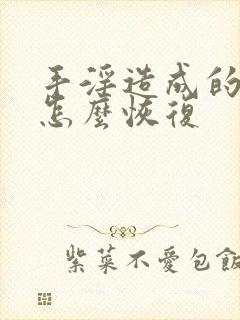 手淫造成的
怎麼恢復
紫菜不愛包飯